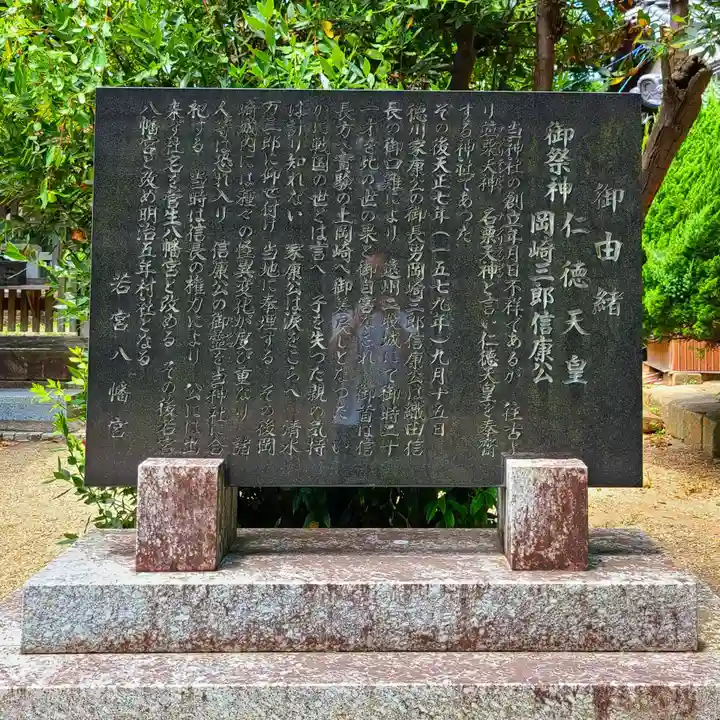 御由緒
御祭神 仁徳天皇
岡崎三郎信康公
当神社の創立年月日不祥であるが 往古よ
り 名栗天神と言い仁徳天皇を奉斎
する神社であった
その後天正七年(一五七九年)九月十五日
徳川家康公の御長男岡崎三郎信康公は織田信
長の御 により 遠州二俣城にて御時二十
一才を此の世の果と御自害なされ 御首は信
長方へ首験の上岡崎へ御差戻しとなった い
かに戦国の世とは言へ 子を失った親の気持
は計り知れない 家康公は涙をこらへ 清水
万三郎に仰せ付け 当地に奉埋する その後岡
崎城内には種々の怪異変化が度び重なり 諸
人等は恐れ入り 信康公の御 を当神社に合
祀する 当時は信長の権力により 公には出
来ず社名を菅生八幡宮と改める その後若宮
八幡宮と改め明治五年村社となる
若宮八幡宮